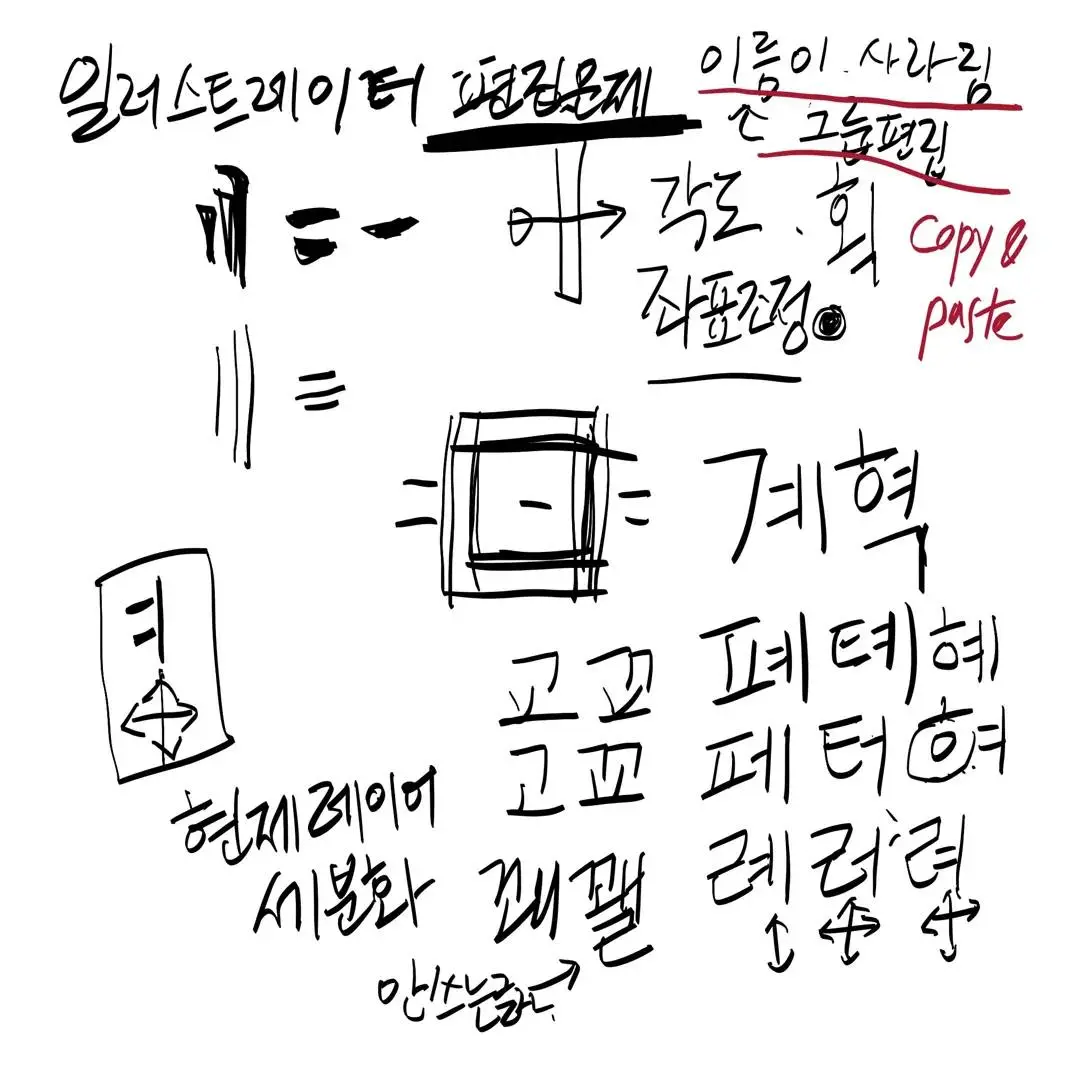 일러스트레이터 편집문제
이름이 사라짐
그룹편집
각도 . 획
좌표조정
Copy &
paste
계 혁
교 꾜 폐 톄 혜
고 꾜 페 터 혀
ㅕ
현재레이어
세분화
꽤 꿸 례 러 려
안쓰는글자